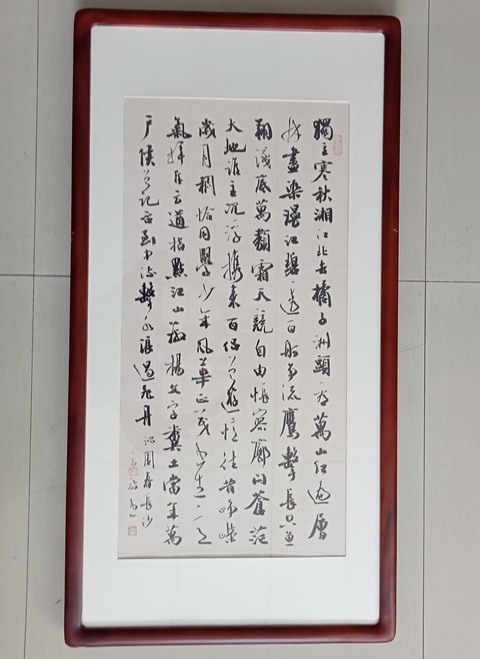 獨立寒秋湘江北去橘子洲頭看萬山紅遍層
林盡染漫江碧透百舸爭流鷹擊長空魚
翔淺底萬類霜天競自由悵寥廓問蒼茫
大地誰主沉浮攜來百侶曾遊憶往昔崢嶸
歲月稠恰同學少年風華正茂書生意
氣揮斥方遒指點江山激揚文字糞土當年萬
戶侯曾記否到中流擊水浪遏飛舟 沁園春長沙